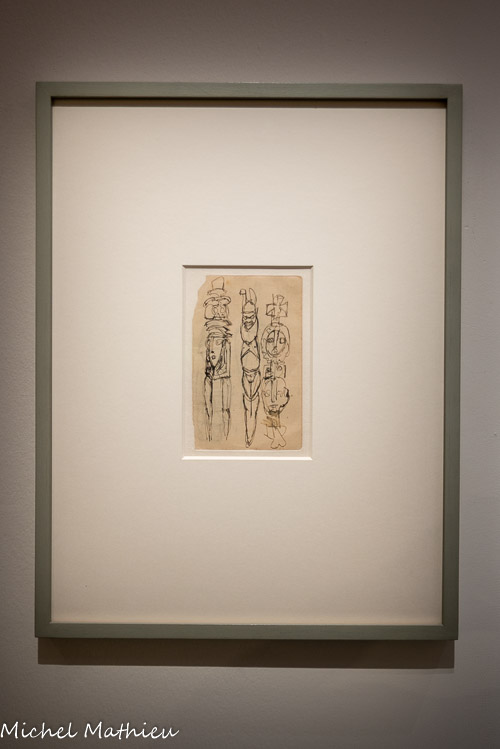 Michel Mathieu